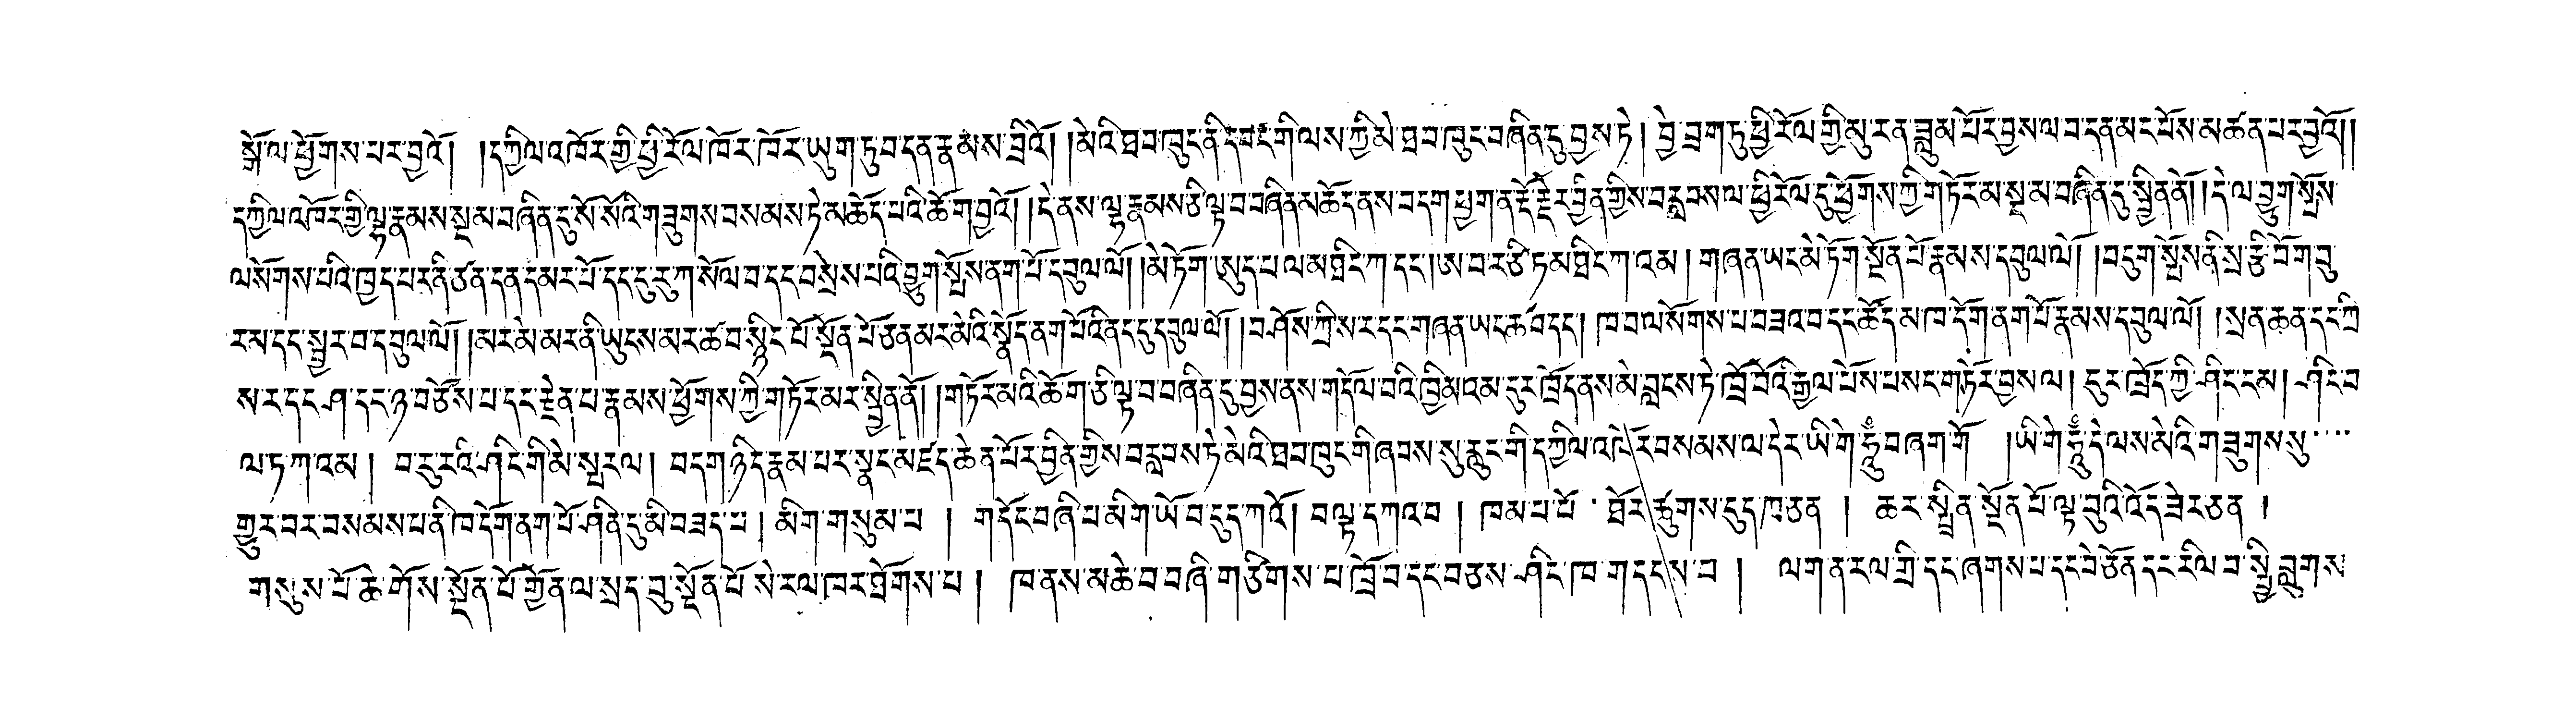 སྒྲོལ་ཕྱོགས་པར་བྱའོ། །དཀྱིལ་འཁོར་གྱི་ཕྱི་རོལ་ཁོར་ཁོར་ཡུག་ཏུ་བདན་རྣམས་བྲིའོ། །མེའི་ཐབ་ཁུང་ནི་དབང་གི་ལས་ཀྱི་མེ་ཐབ་ཁུང་བཞིན་དུ་བྱས་ཏེ། བྱེ་བྲག་ཏུ་ཕྱི་རོལ་གྱི་མུ་རན་ཟླུམ་པོར་བྱས་ལ་བདན་མང་པོས་མཚན་པར་བྱའོ།།
དཀྱིལ་འཁོར་གྱི་ལྷ་རྣམས་སྔ་མ་བཞིན་དུ་སོ་སོའི་གཟུགས་བསམས་ཏེ་མཆོད་པའི་ཆོ་ག་བྱའོ། །དེ་ནས་ལྷ་རྣམས་ཅི་ལྟ་བ་བཞིན་མཆོད་ནས་བདག་ཕྱག་ན་རྡོ་རྗེར་བྱིན་གྱིས་བརླབས་ལ་ཕྱི་རོལ་དུ་ཕྱོགས་ཀྱི་གཏོར་མ་སྔ་མ་བཞིན་དུ་སྦྱིན་ནོ། །དེ་ལ་བྱུག་སྤོས་
ལ་སོགས་པའི་ཁྱད་པར་ནི་ཙན་དན་དམར་པོ་དང་དུ་རུ་ཀ་སོལ་བ་དང་བསྲེས་པའི་བྱུག་སྤོས་ནག་པོ་དབུལ་ལོ། །མེ་ཏོག་ཨུད་པ་ལ་མཐིང་ཀ་དང་།ཨ་བ་ར་ཙི་ཏ་མཐིང་ཀ་འམ། གཞན་ཡང་མེ་ཏོག་སྔོན་པོ་རྣམས་དབུལ་ལོ། །བདུག་སྤོས་ནི་སྲ་རྩི་བོ་ག་བུ་
ར་མ་དང་སྦྱར་བ་དབུལ་ལོ། །མར་མེ་མར་ནི་ཡུངས་མར་ཚ་བ་སྙིང་པོ་སྔོན་པོ་ཅན་མར་མེའི་སྣོད་ནག་པོའི་ནང་དུ་དབུལ་ལོ། །བཤོས་ཀྲི་ས་ར་དང་གཞན་ཡང་ཚབ་དང་། ཁ་བ་ལ་སོགས་པ་བཟའ་བ་དང་ཚོད་མ་ཁ་དོག་ནག་པོ་རྣམས་དབུལ་ལོ། །སྲན་ཆན་དང་ཀྲི་
ས་ར་དང་ཤ་དང་ཉ་བཙོས་པ་དང་རྗེན་པ་རྣམས་ཕྱོགས་ཀྱི་གཏོར་མར་སྦྱིན་ནོ། །གཏོར་མའི་ཆོ་ག་ཅི་ལྟ་བ་བཞིན་དུ་བྱས་ནས་གདོལ་བའི་ཁྱིམ་འམ་དུར་ཁྲོད་ནས་མེ་བླངས་ཏེ་ཁྲོ་བོའི་རྒྱལ་པོས་པསང་གཏོར་བྱས་ལ། དུར་ཁྲོད་ཀྱི་ཤིང་ངམ། ཤིང་བ་
ལ་ཏ་ཀ་འམ། བ་དུ་རའི་ཤིང་གི་མེ་སྤར་ལ། བདག་ཉིད་རྣམ་པར་སྣང་མཛད་ཆེན་པོར་བྱིན་གྱིས་བརླབས་ཏེ་མེའི་ཐབ་ཁུང་གི་ཞབས་སུ་རླུང་གི་དཀྱིལ་འཁོར་བསམས་ལ་དེར་ཡི་གེ་ཧཱུྃ་བཞག་གོ །ཡི་གེ་ཧཱུྃ་དེ་ལས་མེའི་གཟུགས་སུ་
གྱུར་བར་བསམས་པ་ནི་ཁ་དོག་ནག་པོ་ཤིན་དུ་མི་བཟད་པ། མིག་གསུམ་པ། གདོང་བཞི་པ་མིག་ཡོ་བ་དུད་ཀའོ། བལྟ་དཀའ་བ། ཁམ་པ་པོ་ ཐོར་ཚུགས་དུད་ཁ་ཅན། ཆར་སྤྲིན་སྔོན་པོ་ལྟ་བུའི་འོད་ཟེར་ཅན།
གསུས་པོ་ཆེ་གོས་སྔོན་པོ་གྱོན་ལ་སྲད་བུ་སྔོན་པོ་སེ་རལ་ཁར་ཐོགས་པ། ཁ་ནས་མཆེ་བ་བཞི་གཙིགས་པ་ཁྲོ་བ་དང་བཅས་ཤིང་ཁ་གདངས་བ། ལག་ན་རལ་གྲི་དང་ཞགས་པ་དང་བེ་ཅོན་དང་རིལ་བ་སྤྱི་བླུགས་